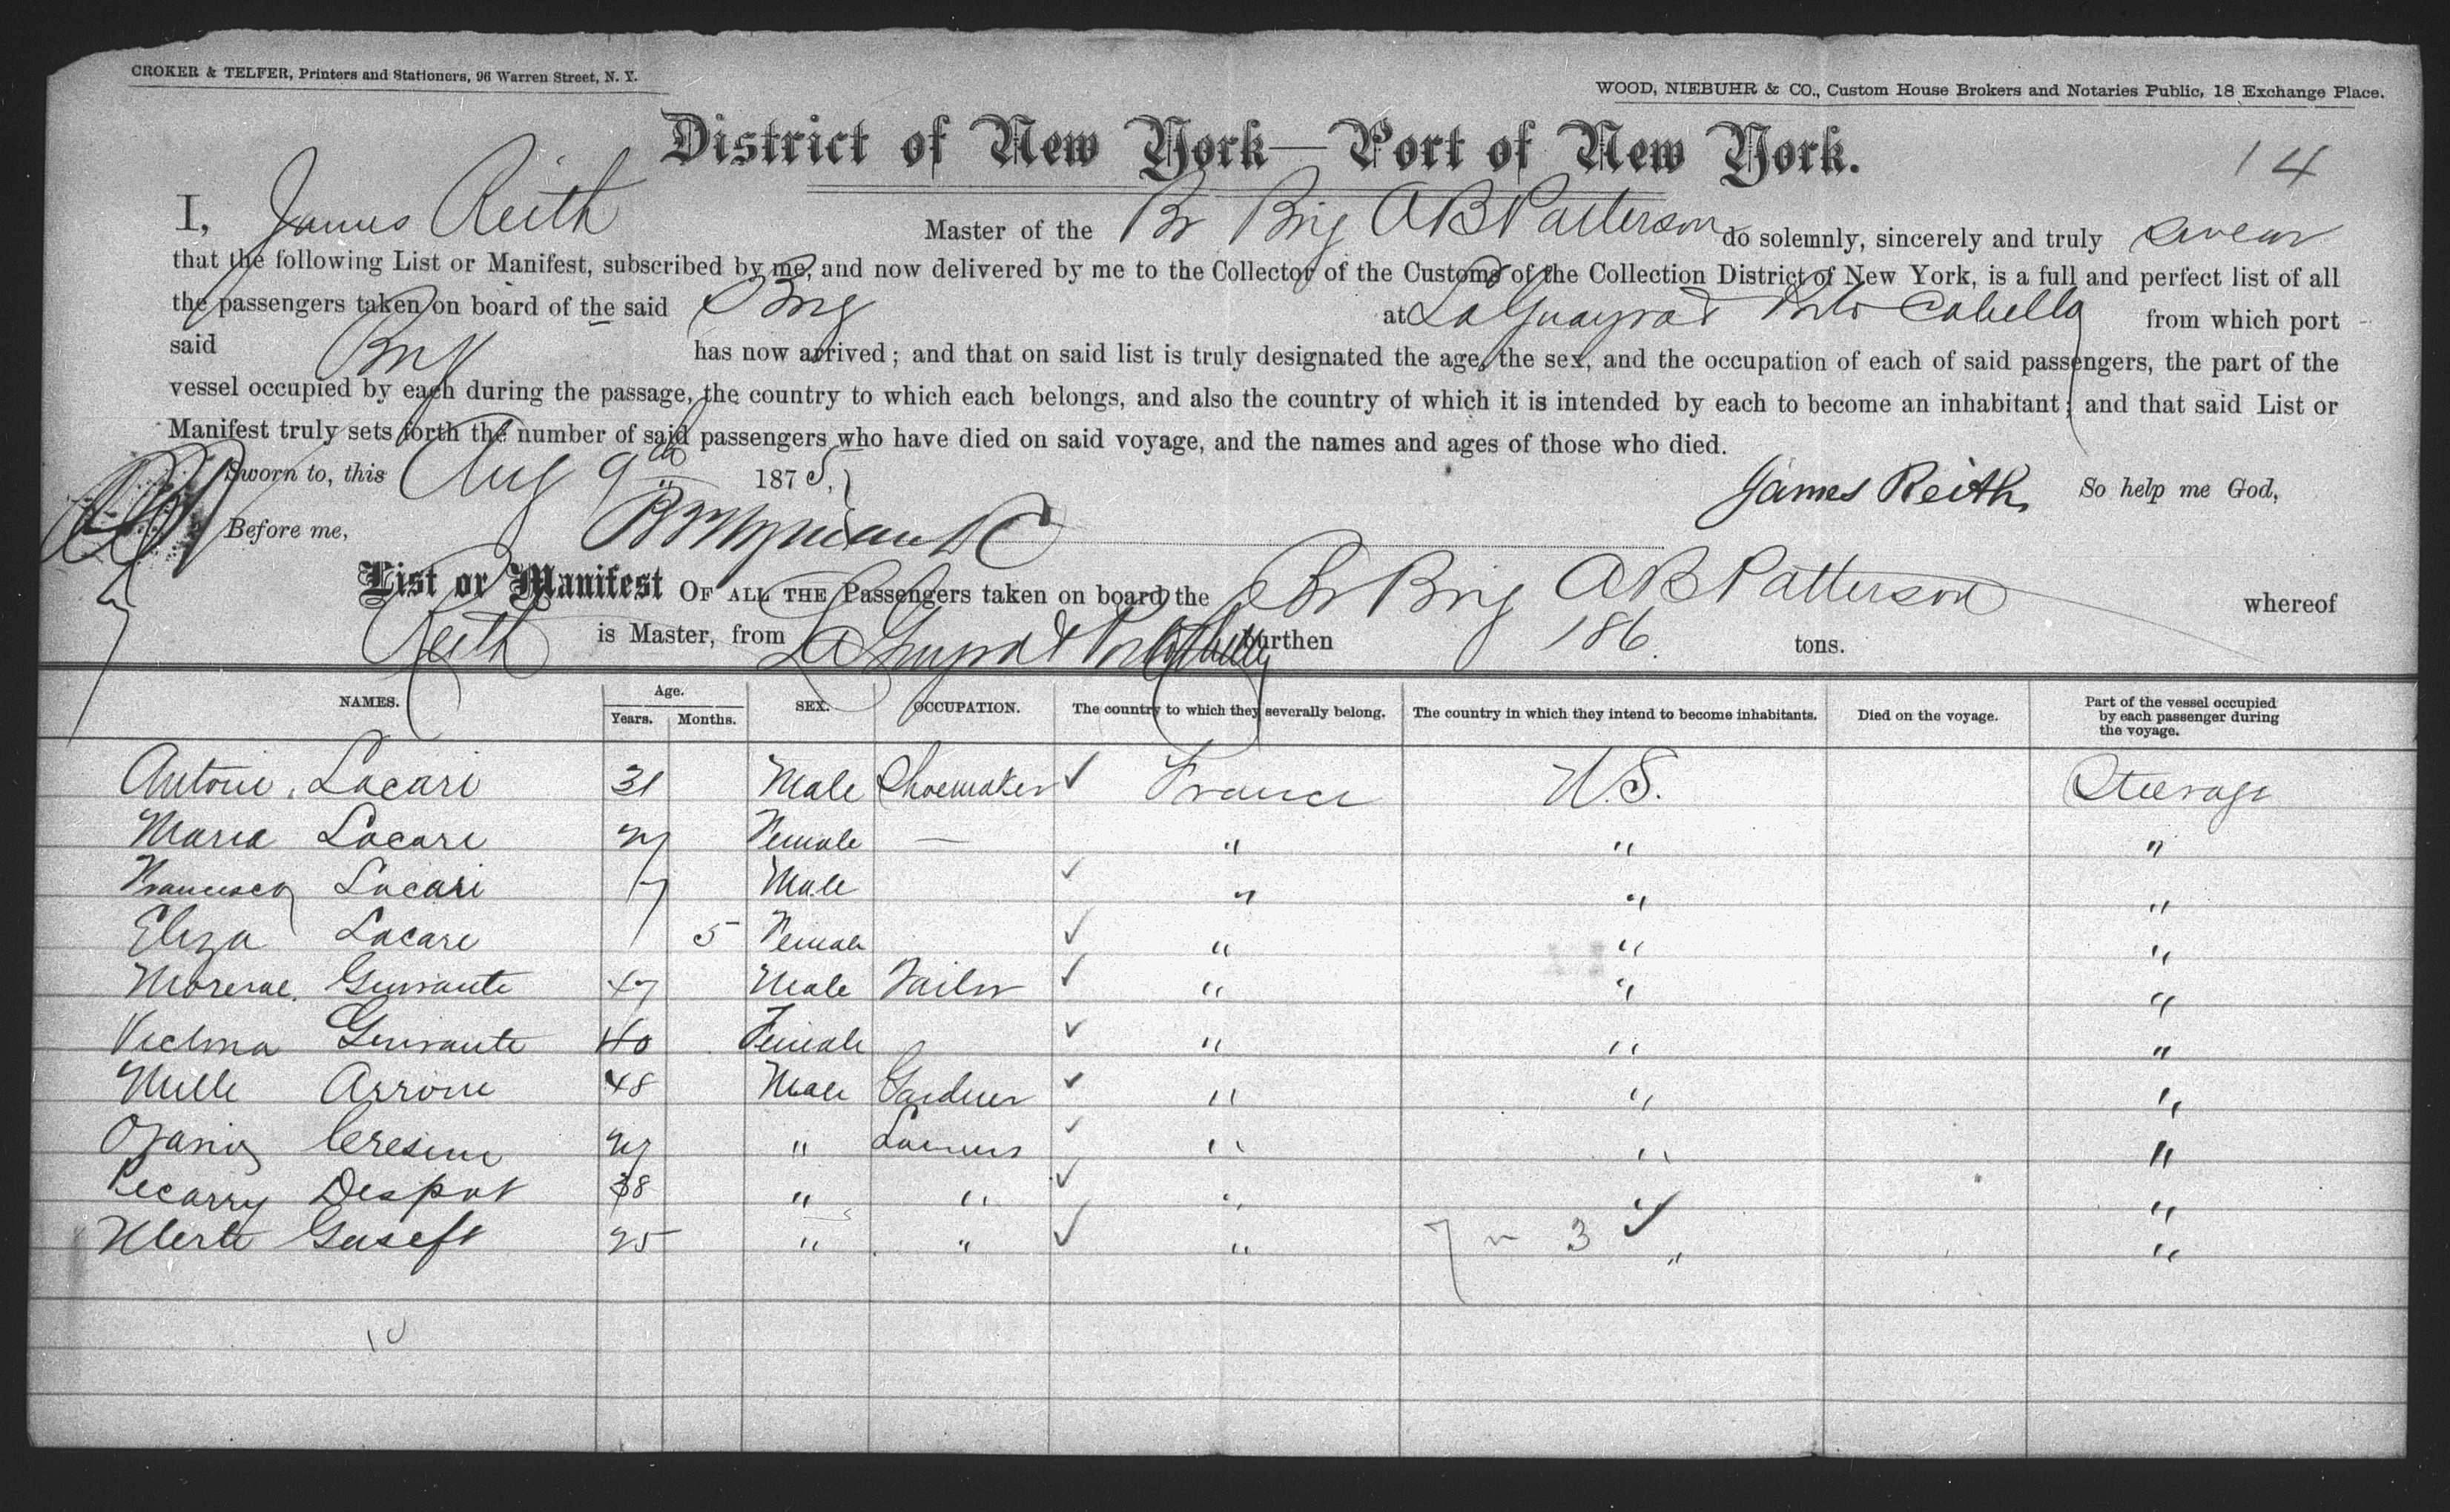 CROKER & TELFER, Printers and Stationers, 96 Warren Street, N. Y.
WOOD, NIEBUHR & CO., Custom House Brokers and Notaries Public, 18 Exchange Place.
District of New York—Port of New York.
14
I, James Reith Master of the Br Brig A B Patterson do solemnly, sincerely and truly swear
that the following List or Manifest, subscribed by me, and now delivered by me to the Collector of the Customs of the Collection District of New York, is a full and perfect list of all
the passengers taken on board of the said Brig at La Guayra & Porto Cabello from which port
said Brig has now arrived; and that on said list is truly designated the age, the sex, and the occupation of each of said passengers, the part of the
vessel occupied by each during the passage, the country to which each belongs, and also the country of which it is intended by each to become an inhabitant; and that said List or
Manifest truly sets forth the number of said passengers who have died on said voyage, and the names and ages of those who died.
Sworn to, this Aug 9th 1875, James Reith So help me God,
Before me,
List or Manifest OF ALL THE Passengers taken on board the Br Brig A B Patterson whereof
Reith is Master, from La Guayra & Porto Cabello burthen 186 tons.
NAMES. Age. Years. Months. SEX. OCCUPATION. The country to which they severally belong. The country in which they intend to become inhabitants. Died on the voyage. Part of the vessel occupied by each passenger during the voyage.
Antoni Locari 31 Male Shoemaker ✓ France U.S. Steerage
Maria Locari 27 Female — " " "
Francisco Locari 7 Male ✓ " " "
Eliza Locari 1 5 Female ✓ " " "
Guirante 47 Male Tailor ✓ " " "
Guirante 40 Female ✓ " " "
Mille Arroni 48 Male Gardner ✓ " " "
Ceresini 27 " ✓ " " "
Pecarry Despot 38 " " ✓ " " "
Guseft 25 " " ✓ " " "
7 3 ✓
10